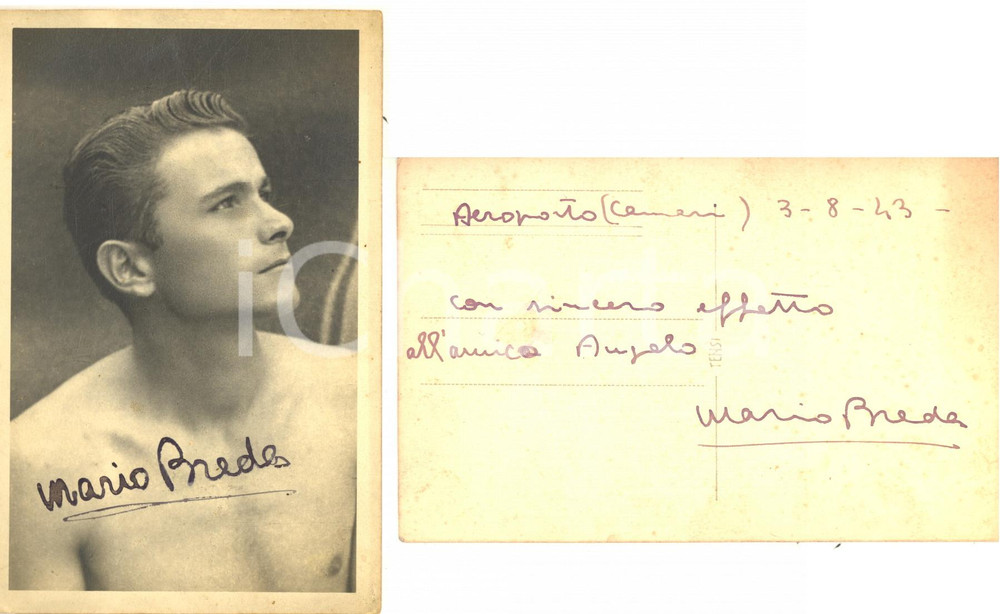 Mario Breda
Aeroporto (Cameri) 3-8-43 -
con sincero affetto
all'amico Angelo
Mario Breda
iCharta